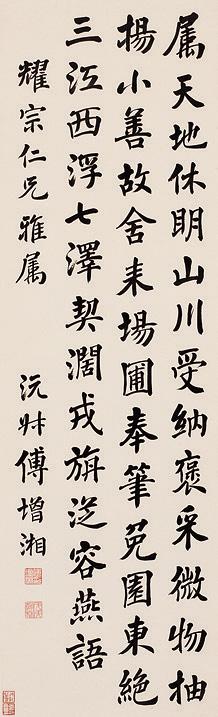 属天地休明山川受納褒采微物抽
揚小善故舍耒場圃奉筆兎園東絶
三江西浮七澤契濶戎旃從容燕語
耀宗仁兄雅属
沅叔傅增湘